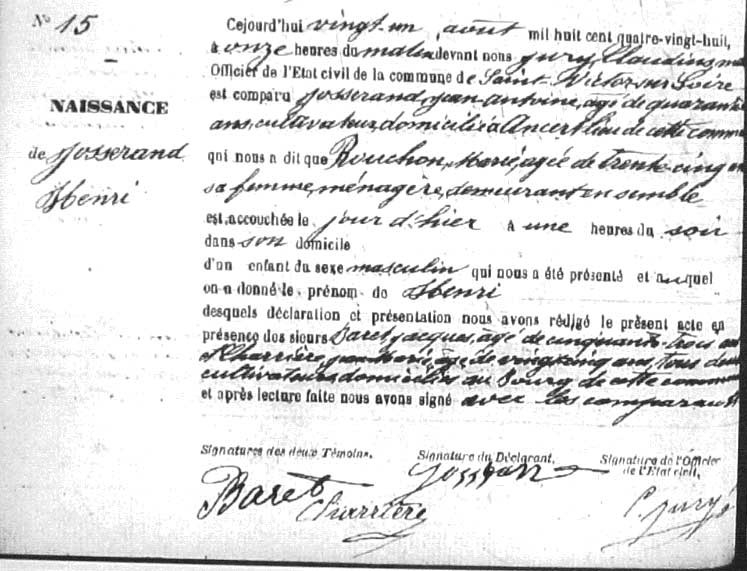 No 15
NAISSANCE
de Josserand
Henri
Cejourd'hui vingt-un août mil huit cent quatre-vingt-huit,
à onze heures du matin devant nous Jury, Claudius,
Officier de l'Etat civil de la commune de Saint-Victor-sur-Loire
est comparu Josserand, Jean-Antoine, âgé de quarante
ans, cultivateur, domicilié à lieu de cette commune
qui nous a dit que Rouchon, Marie, agée de trente-cinq ans
sa femme, ménagère, demeurant ensemble
est accouchée le jour d'hier à une heures du soir
dans son domicile
d'un enfant du sexe masculin qui nous a été présenté et auquel
on a donné le prénom de Henri
desquels déclaration et présentation nous avons rédigé le présent acte en
présence des sieurs Baret, Jacques, âgé de cinquante-trois ans
et Charrière, Jean-Marie, âgé de vingt cinq ans, tous deux
cultivateurs, domiciliés au Bourg de cette commune
et après lecture faite nous avons signé avec les comparants
Signatures des deux Témoins.
Signature du Déclarant,
Signature de l'Officier
de l'Etat civil,
Baret
Charrière
C. Jury